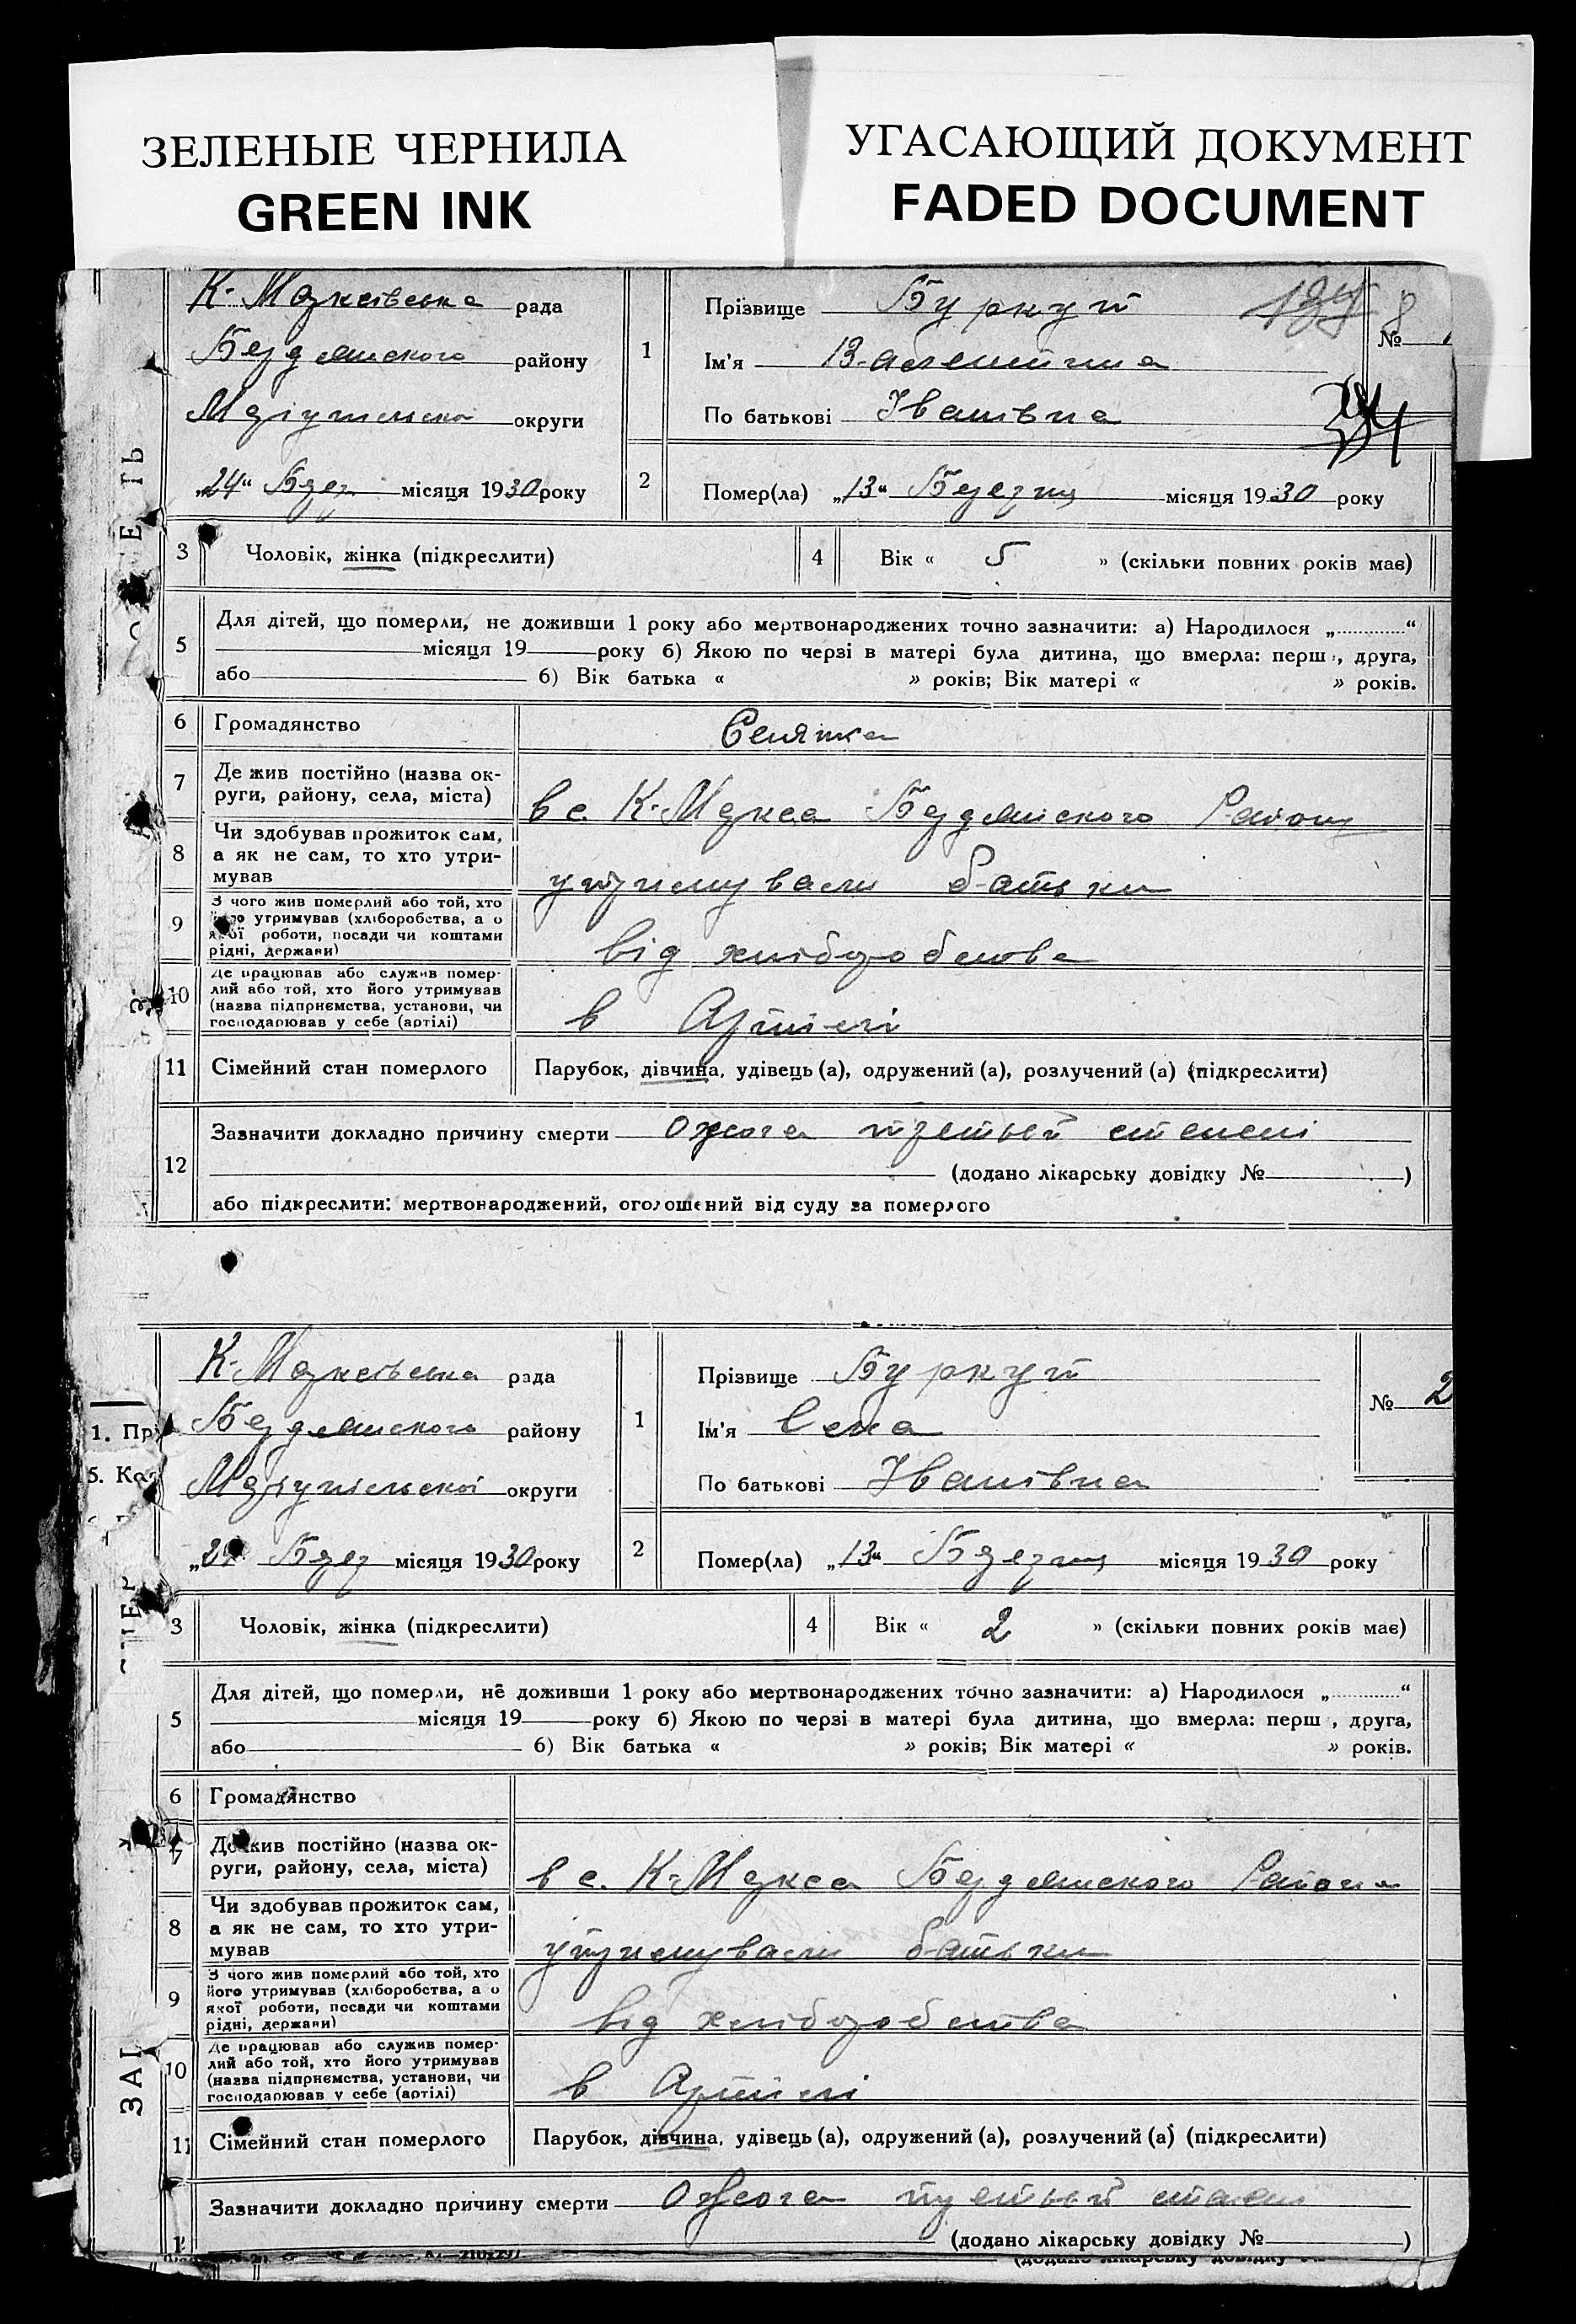 ЗЕЛЕНЫЕ ЧЕРНИЛА
GREEN INK
УГАСАЮЩИЙ ДОКУМЕНТ
FADED DOCUMENT
К-Марксівська рада
Бердянського району
Маріупільської округи
„24“ Берез місяця 1930 року
1
Прізвище Буркут
Ім'я Валентина
По батькові Іванівна
№
2
Помер(ла) „13“ Березня місяця 1930 року
3 Чоловік, жінка (підкреслити)
4 Вік « 5 » (скільки повних років має)
5 Для дітей, що померли, не доживши 1 року або мертвонароджених точно зазначити: а) Народилося „ “
місяця 19 року б) Якою по черзі в матері була дитина, що вмерла: перш , друга,
або б) Вік батька « » років; Вік матері « » років.
6 Громадянство Селянка
7 Де жив постійно (назва ок-
руги, району, села, міста)
в с. К-Маркса Бердянського Району
8 Чи здобував прожиток сам,
а як не сам, то хто утри-
мував
утримували батьки
9 З чого жив померлий або той, хто
його утримував (хліборобства, а о
якої роботи, посади чи коштами
рідні, держави)
від хліборобства
10 Де працював або служив помер-
лий або той, хто його утримував
(назва підприємства, установи, чи
господарював у себе (артілі)
в Артілі
11 Сімейний стан померлого Парубок, дівчина, удівець (а), одружений (а), розлучений (а) (підкреслити)
12 Зазначити докладно причину смерти Ожога третьей степені
(додано лікарську довідку № )
або підкреслити: мертвонароджений, оголошений від суду за померлого
К-Марксівська рада
Бердянського району
Маріупільської округи
„24“ Берез місяця 1930 року
1
Прізвище Буркут
Ім'я Лена
По батькові Іванівна
№ 2
2
Помер(ла) „13“ Березня місяця 1930 року
3 Чоловік, жінка (підкреслити)
4 Вік « 2 » (скільки повних років має)
5 Для дітей, що померли, не доживши 1 року або мертвонароджених точно зазначити: а) Народилося „ “
місяця 19 року б) Якою по черзі в матері була дитина, що вмерла: перш , друга,
або б) Вік батька « » років; Вік матері « » років.
6 Громадянство
7 Де жив постійно (назва ок-
руги, району, села, міста)
в с. К-Маркса Бердянського Района
8 Чи здобував прожиток сам,
а як не сам, то хто утри-
мував
утримували батьки
9 З чого жив померлий або той, хто
його утримував (хліборобства, а о
якої роботи, посади чи коштами
рідні, держави)
від хліборобства
10 Де працював або служив помер-
лий або той, хто його утримував
(назва підприємства, установи, чи
господарював у себе (артілі)
в Артілі
11 Сімейний стан померлого Парубок, дівчина, удівець (а), одружений (а), розлучений (а) (підкреслити)
Зазначити докладно причину смерти Ожога третьей степені
(додано лікарську довідку № )